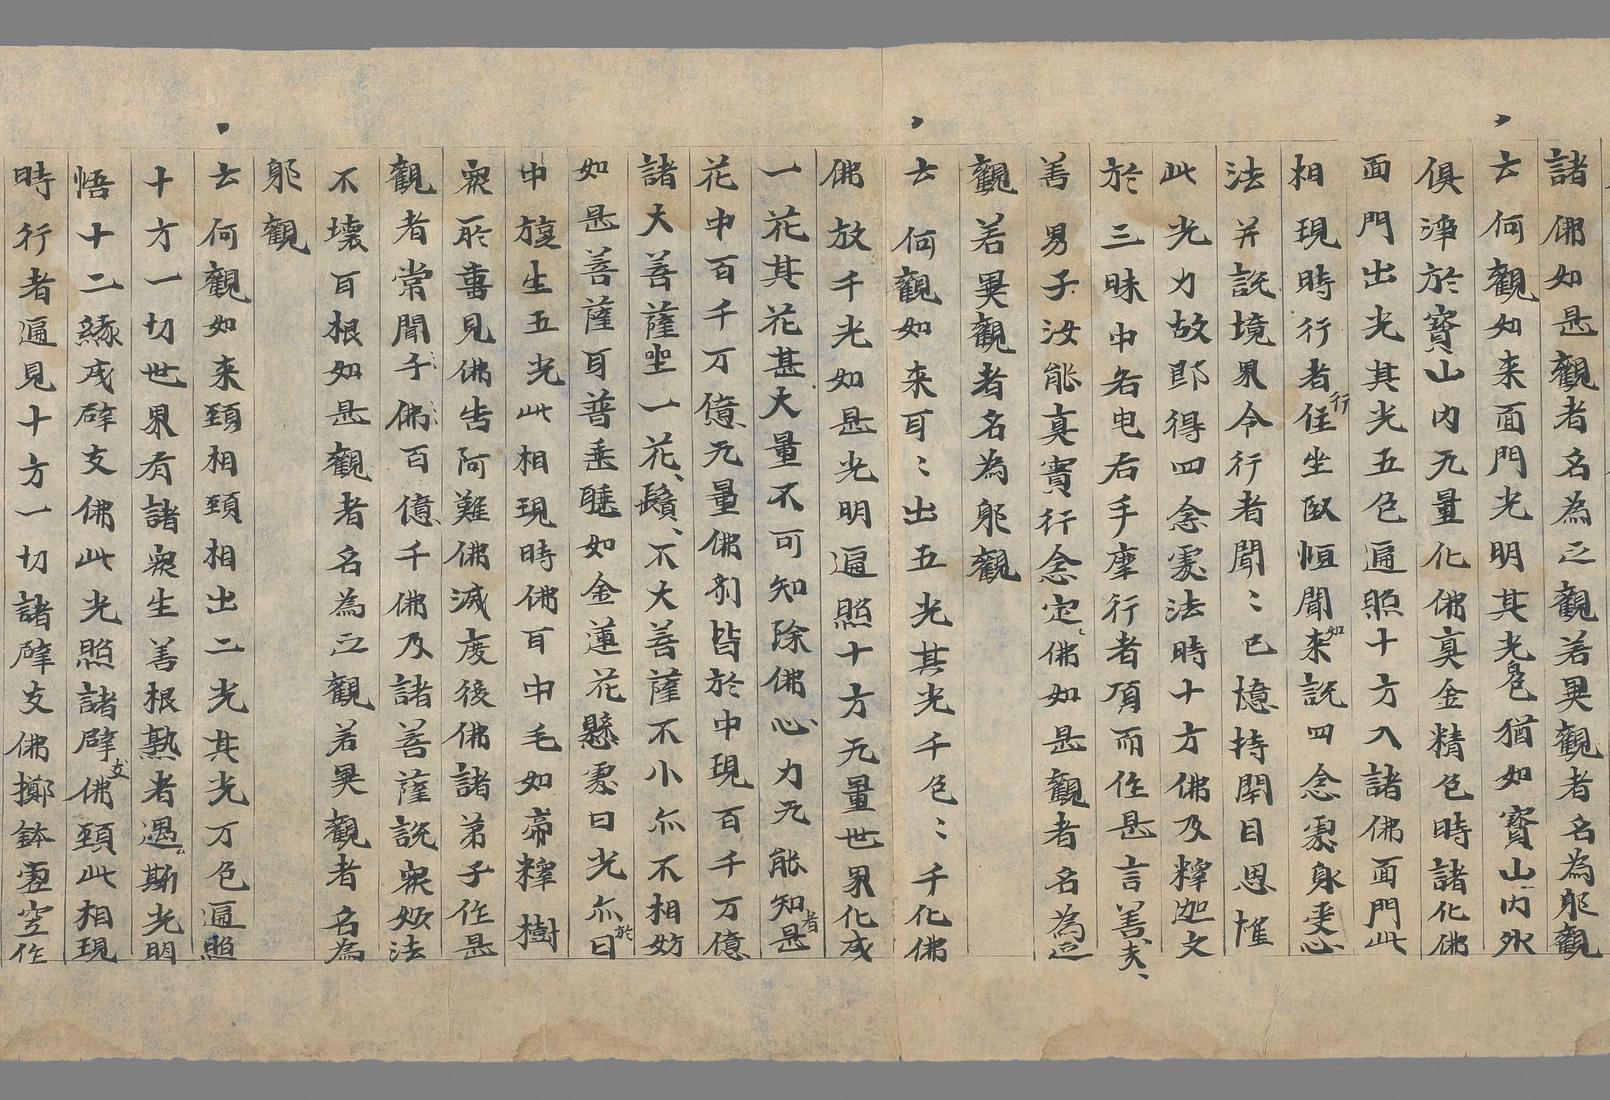 諸佛如是觀者名為正觀若異觀者名為邪觀
云何觀如來面門光明其光色猶如寳山内外
俱淨於寳山内无量化佛真金精色時諸化佛
面門出光其光五色遍照十方入諸佛面門此
相現時行者行住坐臥恒聞如来説四念處身受心
法并説境界令行者聞〻已憶持閇目思惟
此光力故即得四念處法時十方佛及釋迦文
於三昧中各申右手摩行者頂而作是言善哉〻
善男子汝能真實行念定〻佛如是觀者名為正
觀若異觀者名為邪觀
云何觀如来耳〻出五光其光千色〻千化佛
佛放千光如是光明遍照十方无量世界化成
一花其花甚大量不可知除佛心力无能知者是
花中百千万億无量佛刹皆於中現百千万億
諸大菩薩坐一花鬚不大菩薩不小亦不相妨
如是菩薩耳普垂睡如金蓮花懸處日光亦於日
中旋生五光此相現時佛耳中毛如帝釋樹
衆所喜見佛告阿難佛滅度後佛諸弟子作是
觀者常聞千佛百億千佛及諸菩薩説衆妙法
不壞耳根如是觀者名為正觀若異觀者名為
邪觀
云何觀如来頚相頚相出二光其光万色遍照
十方一切世界有諸衆生善根熟者遇斯光明
悟十二緣成辟支佛此光照諸辟支佛頚此相現
時行者遍見十方一切諸辟支佛擲鉢虛空作